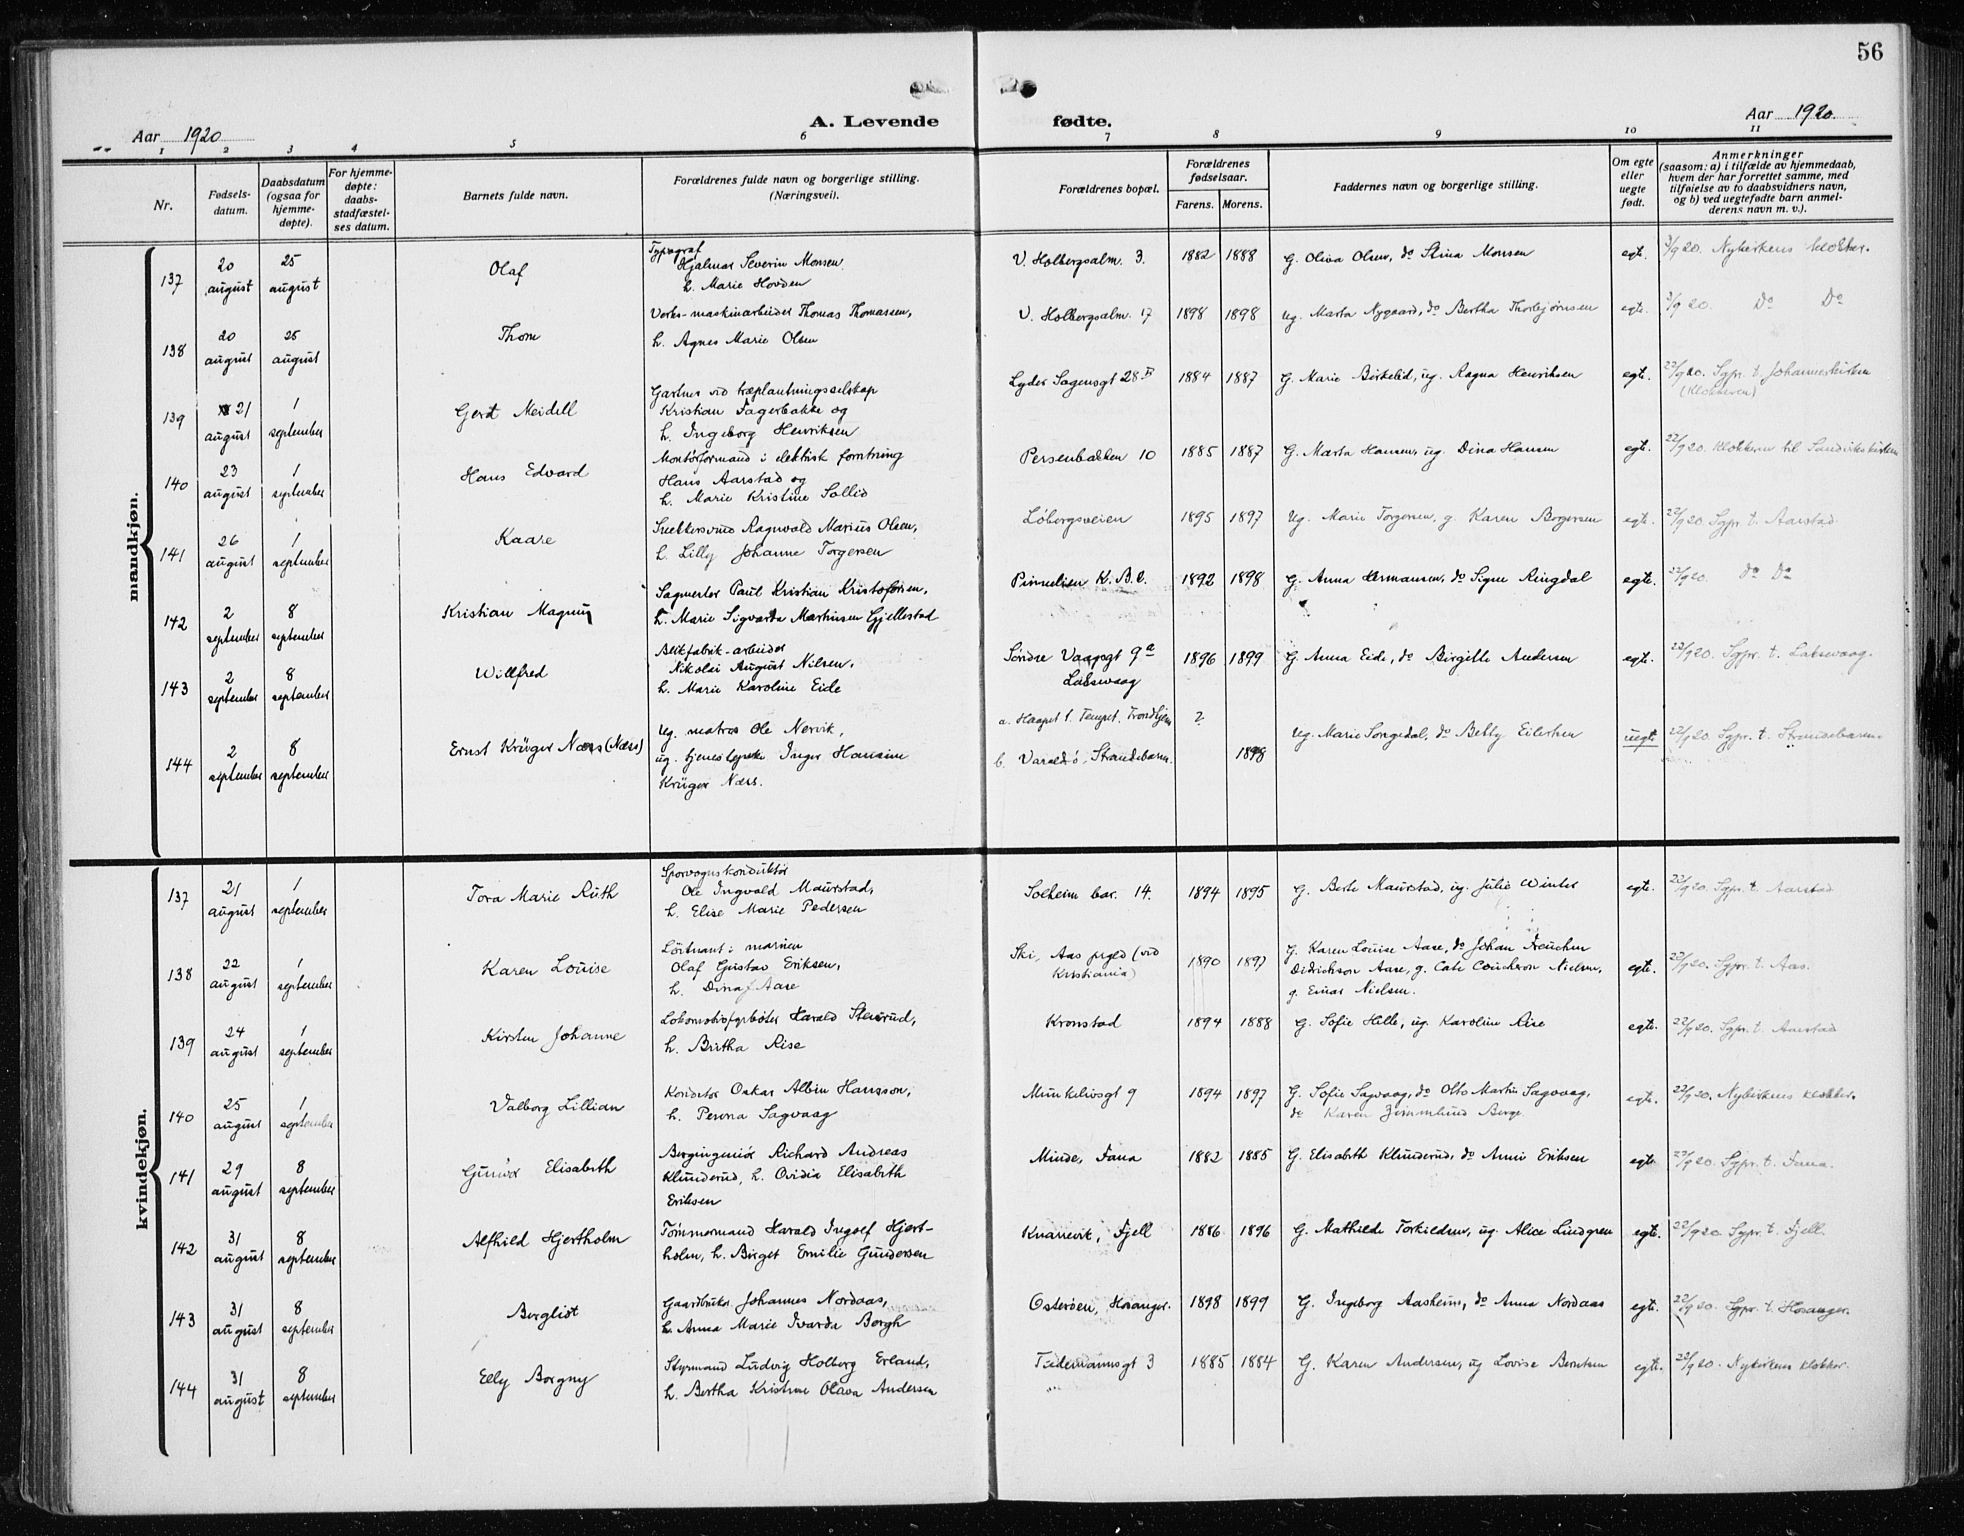 56
Aar 1920
A. Levende fødte.
Aar 1920.
1 2 3 4 5 6 7 8 9 10 11
Nr.
Fødsels-
datum.
Daabsdatum
(ogsaa for
hjemme-
døpte).
For hjemme-
døpte:
daabs-
stadfæstel-
ses datum.
Barnets fulde navn.
Forældrenes fulde navn og borgerlige stilling.
(Næringsvei).
Forældrenes bopæl.
Forældrenes
fødselsaar.
Farens. Morens.
Faddernes navn og borgerlige stilling.
Om egte
eller
uegte
født.
Anmerkninger
(saasom: a) i tilfælde av hjemmedaab,
hvem der har forrettet samme, med
tilføielse av to daabsvidners navn,
og b) ved uegtefødte barn anmel-
derens navn m. v.).
mandkjøn.
137
20 august
25 august
Olaf
Typograf
Hjalmar Severin Monsen,
h. Marie Hovden
V. Holbergsalm. 3.
1882 1888
G. Oliva Olsen, do Stina Monsen
egte.
3/9 20. Nykirkens klokker.
138
20 august
25 august
Thom
Verks-maskinarbeider Thomas Thomassen,
h. Agnes Marie Olsen
V. Holbergsalm. 17
1898 1898
ug. Marta Nygaard, do Bertha Thorbjørnsen
egte.
3/9 20. Do Do
139
21 august
1 september
Gerdt Meidell
Gartner ved træplantningsselskap
Kristian Fagerbakke og
h. Ingeborg Henriksen
Lyder Sagensgt 28 B
1884 1887
G. Marie Birkelid, ug. Ragna Henriksen
egte.
22/9 20. Sgpr. t. Johanneskirken
(Klokkeren)
140
23 august
1 september
Hans Edvard
Montørformand i elektrisk forretning
Hans Aarstad og
h. Marie Kristine Sollid
Persenbakken 10
1885 1887
G. Marta Hansen, ug. Dina Hansen
egte.
22/9 20. Klokkeren til Sandvikskirken
141
26 august
1 september
Kaare
Snekkersvend Ragnvald Marius Olsen,
h. Lilly Johanne Torgersen
Løbergsveien
1895 1897
Ug. Marie Torgersen, g. Karen Borgersen
egte.
22/9 20. Sgpr. t. Aarstad.
142
2 september
8 september
Kristian Magnus
Sagmester Paul Kristian Kristofersen,
h. Marie Sigvarda Markusen Gjellestad
1892 1898
G. Anna Hermansen, do Signe Ringdal
egte.
22/9 20. Do Do
143
2 september
8 september
Willfred
Blikfabrik-arbeider
Nikolai August Nilsen,
h. Marie Karoline Eide
Søndre Vaagsgt 9a
Laksevaag
1896 1899
G. Anna Eide, do Birgitte Andersen
egte.
22/9 20. Sgpr. t. Laksevaag.
144
2 september
8 september
Ernst Krüger Næss (Næss)
Ug. matros Ole Nervik,
ug. tjenestepike Inger Hansine
Krüger Næss.
?
b. Varaldsø, Strandebarm.
1898
Ug. Marie Songedal, do Betty Eilertsen
uegte
22/9 20. Sgpr. t. Strandebarm.
kvindekjøn.
137
21 august
1 september
Tora Marie Ruth
Sporvognskonduktør
Ole Ingvald Maurstad,
h. Elise Marie Pedersen
Solheim bar. 14.
1894 1895
G. Berte Maurstad, ug. Julie Winter
egte.
22/9 20. Sgpr. t. Aarstad
138
22 august
1 september
Karen Louise
Løitnant i marinen
Olaf Gustav Eriksen,
h. Dina Aase
Ski, Aas prgld (ved
Kristiania)
1890 1897
G. Karen Louise Aase, do Johan Freuchen
Didrichson Aase, g. Cate Coucheron Nielsen,
g. Einar Nielsen.
egte.
22/9 20. Sgpr. t. Aas.
139
24 august
1 september
Kirsten Johanne
Lokomotivfyrbøter Harald Stensrud,
h. Birtha Rise
Kronstad
1894 1888
G. Sofie Hille, ug. Karoline Rise
egte.
22/9 20. Sgpr. t. Aarstad
140
25 august
1 september
Valborg Lillian
Konditor Oskar Albin Hansson,
h. Perna Sagvaag
Munkelivsgt 9
1894 1897
G. Sofie Sagvaag, do Olto Martin Sagvaag,
do Karen Zimmlund Berge.
egte.
22/9 20. Nykirkens klokker.
141
29 august
8 september
Gunvor Elisabeth
Bergingeniør Richard Andreas
Klunderud, h. Ovidia Elisabeth
Eriksen
Minde, Fana
1882 1885
G. Elisabeth Klunderud, do Anni Eriksen
egte.
22/9 20. Sgpr. t. Fana.
142
31 august
8 september
Alfhild Hjertholm
Tømmermand Harald Ingolf Hjert-
holm, h. Birget Emilie Gundersen
Knarrevik, Fjell
1886 1896
G. Mathilde Torkildsen, ug. Alice Lindgren
egte.
22/9 20. Sgpr. t. Fjell.
143
31 august
8 september
Bergliot
Gaardbruker Johannes Nordaas,
h. Anna Marie Ivarda Borgh
Osterøen, Hosanger.
1898 1899
G. Ingeborg Aasheim, do Anna Nordaas
egte.
22/9 20. Sgpr. t. Hosanger.
144
31 august
8 september
Elly Borgny
Styrmand Ludvig Holberg Erland,
h. Bertha Kristine Olava Andersen
Tidemannsgt 3
1885 1884
G. Karen Andersen, ug Lovise Berntsen
egte.
22/9 20. Nykirkens klokker.